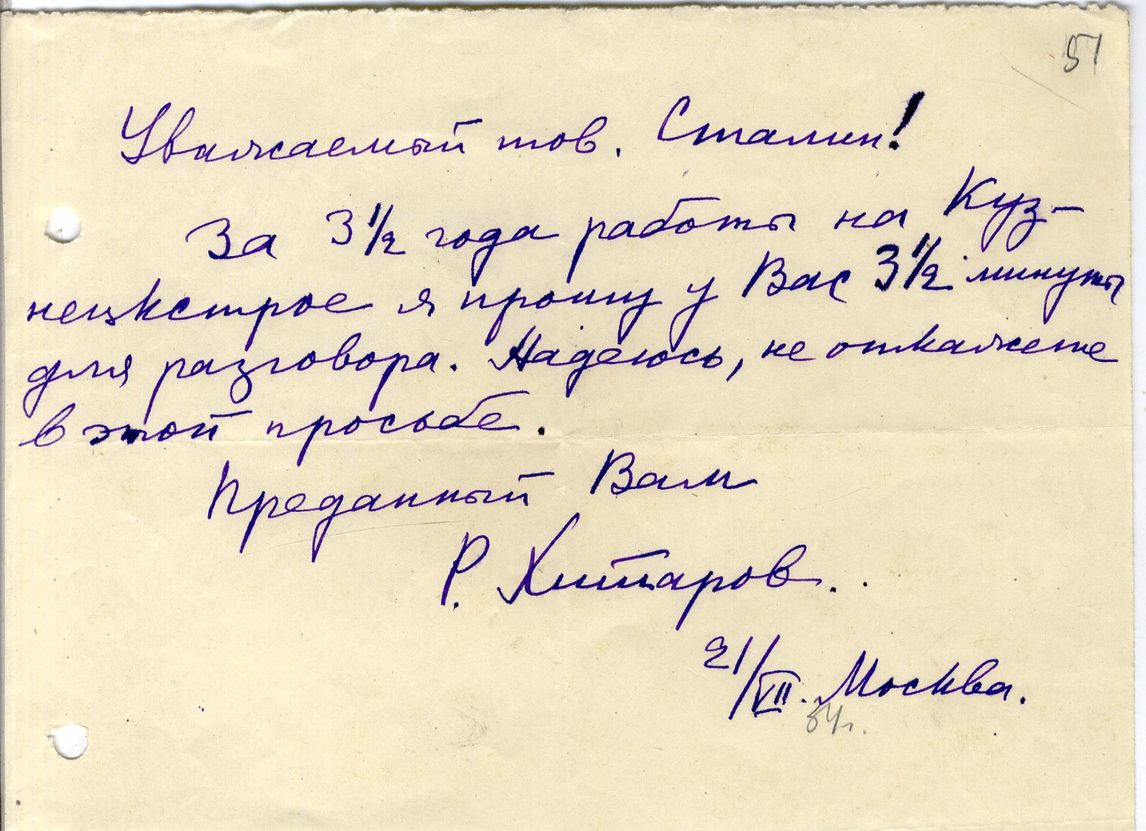 51
Уважаемый тов. Сталин!
За 3 1/2 года работы на Куз-
нецкстрое я прошу у Вас 3 1/2 минуты
для разговора. Надеюсь, не откажете
в этой просьбе.
Преданный Вам
Р. Хитаров.
21/VII. Москва.
34г.